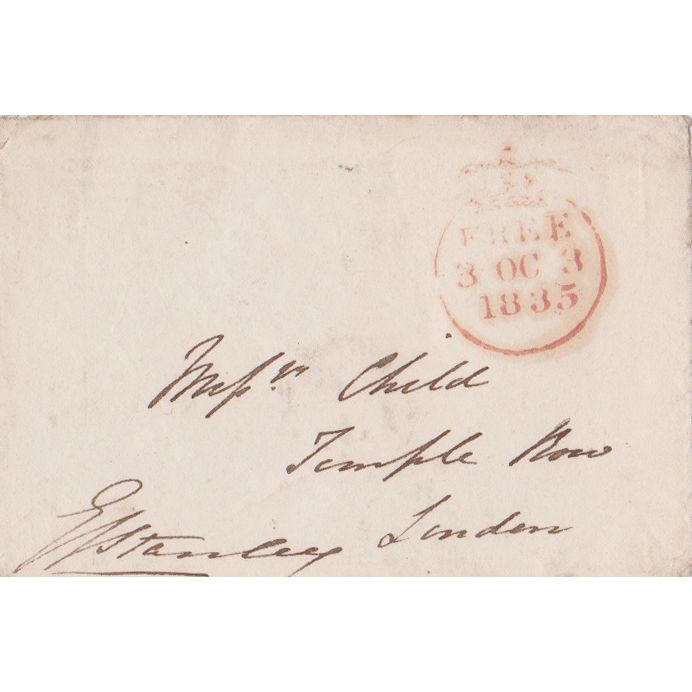 FREE
3 OC 3
1835
Messrs Child
Temple Row
London
E J Stanley